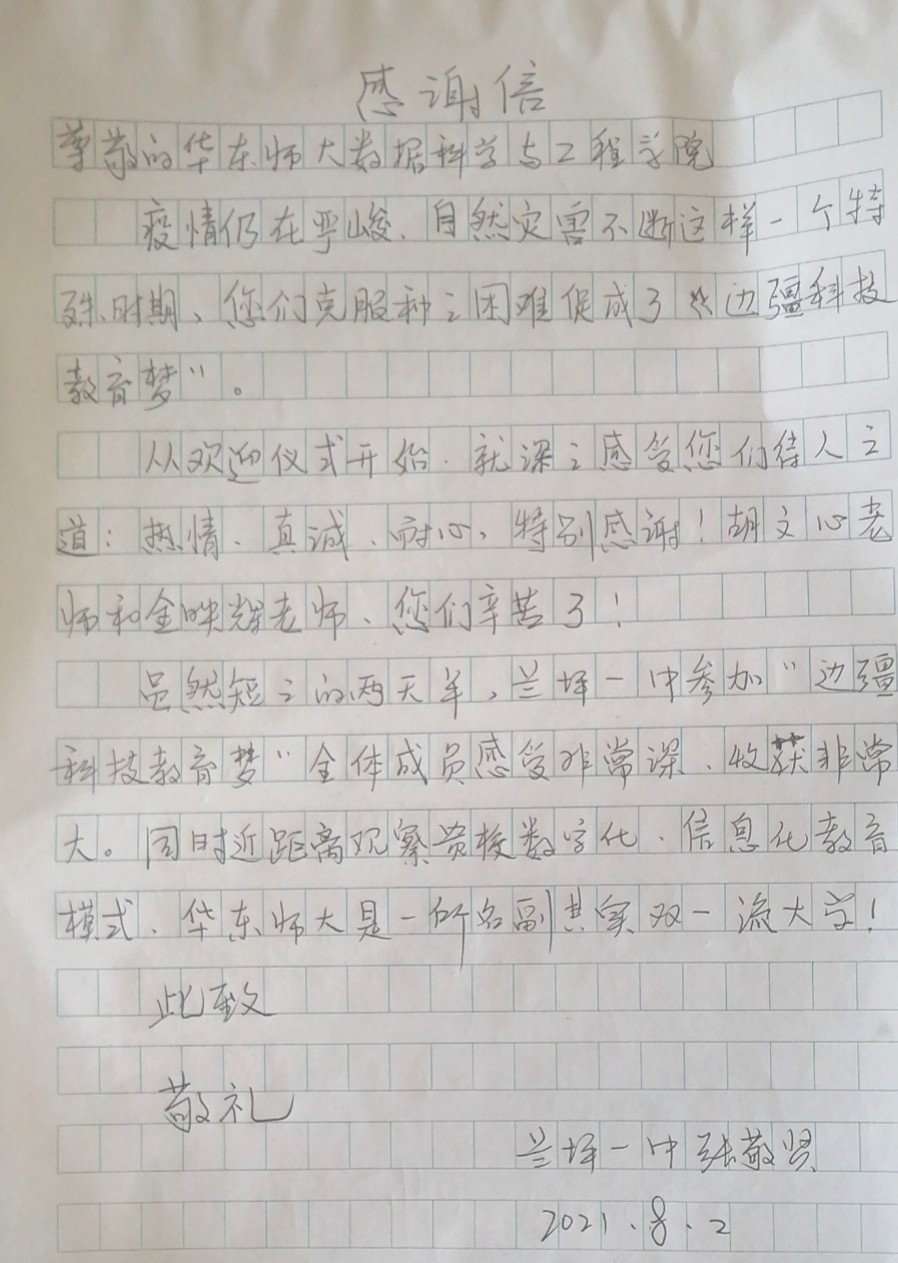 感谢信
尊敬的华东师大数据科学与工程学院
疫情仍在严峻、自然灾害不断这样一个特
殊时期、您们克服种々困难促成了“边疆科技
教育梦”。
从欢迎仪式开始、就深々感受您们待人之
道：热情、真诚、耐心，特别感谢！胡文心老
师和金映辉老师、您们辛苦了！
虽然短々的两天半，兰坪一中参加“边疆
科技教育梦”全体成员感受非常深、收获非常
大。同时近距离观察贵校数字化、信息化教育
模式、华东师大是一所名副其实双一流大学！
此致
敬礼
兰坪一中张敬贤
2021.8.2